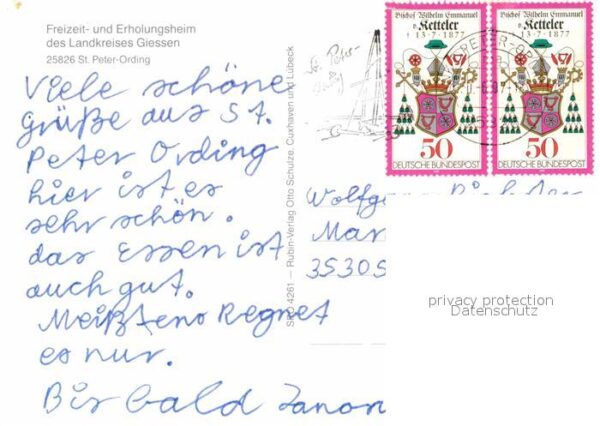 Freizeit- und Erholungsheim
des Landkreises Giessen
25826 St. Peter-Ording
Viele schöne
grüße aus St.
Peter Ording
hier ist es
sehr schön.
das Essen ist
auch gut.
Meißtens Regnet
es nur.
Bis bald
SPO 4261 — Rubin-Verlag Otto Schulze, Cuxhaven und Lübeck
Bischof Wilhelm Emmanuel
v. Ketteler
† 13·7·1877
50
DEUTSCHE BUNDESPOST
Bischof Wilhelm Emmanuel
v. Ketteler
† 13·7·1877
50
DEUTSCHE BUNDESPOST
PETER-OR
Mar
35305
privacy protection
Datenschutz